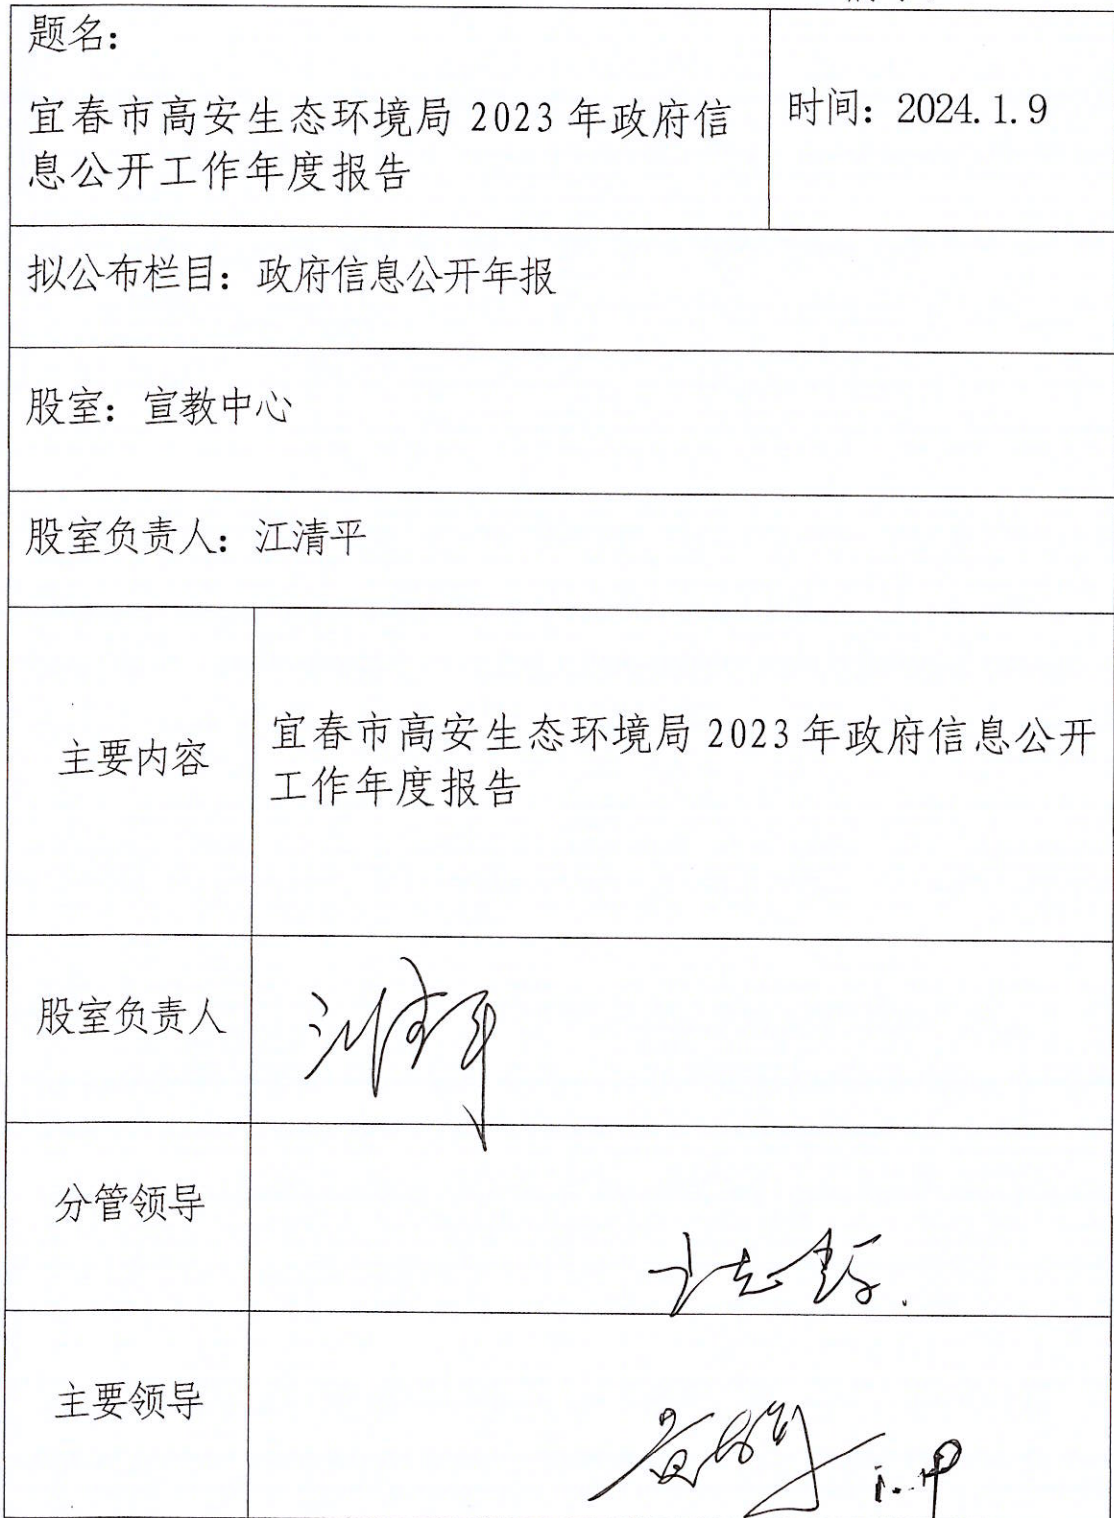 题名：
宜春市高安生态环境局 2023 年政府信
息公开工作年度报告
时间：2024.1.9
拟公布栏目：政府信息公开年报
股室：宣教中心
股室负责人：江清平
主要内容
宜春市高安生态环境局 2023 年政府信息公开
工作年度报告
股室负责人
江清平
分管领导
主要领导